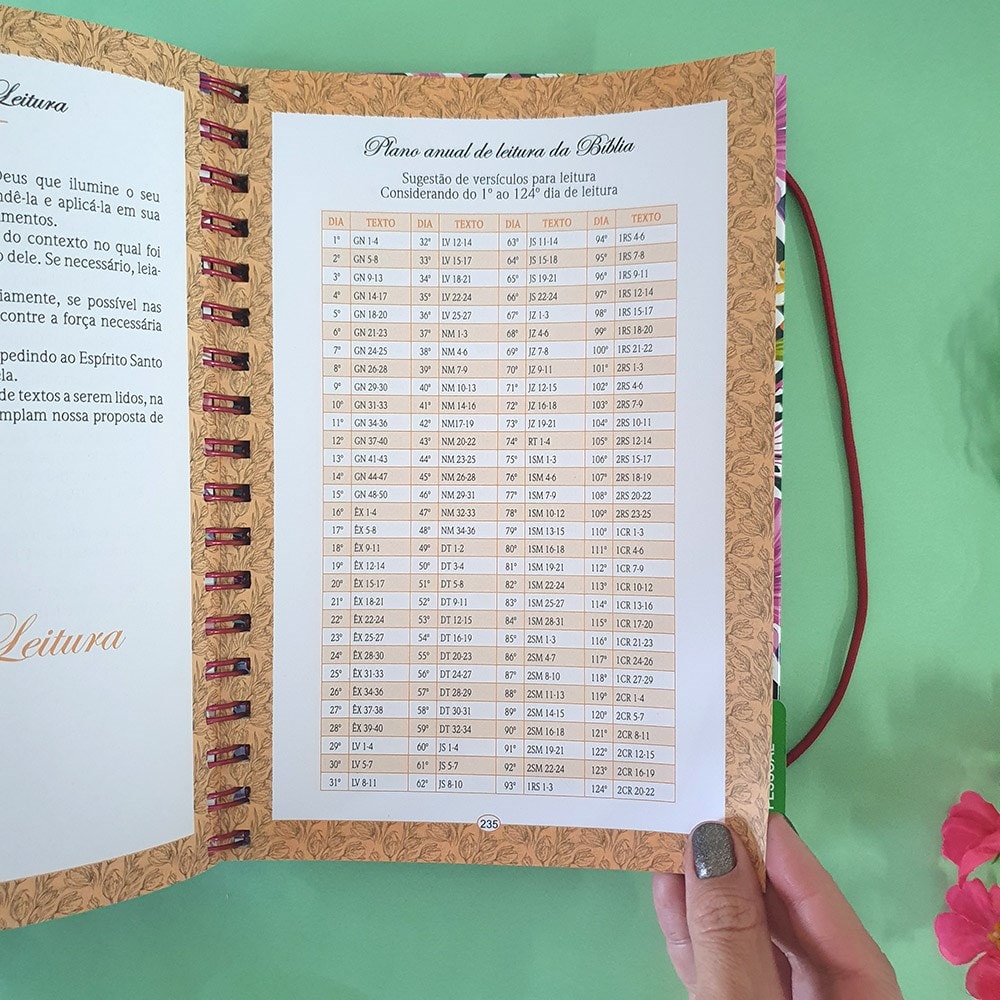 Leitura
Deus que ilumine o seu
ndê-la e aplicá-la em sua
amentos.
do contexto no qual foi
o dele. Se necessário, leia-
iamente, se possível nas
contre a força necessária
pedindo ao Espírito Santo
ela.
de textos a serem lidos, na
mplam nossa proposta de
Leitura
Plano anual de leitura da Bíblia
Sugestão de versículos para leitura
Considerando do 1º ao 124º dia de leitura
DIA TEXTO DIA TEXTO DIA TEXTO DIA TEXTO
1º GN 1-4 32º LV 12-14 63º JS 11-14 94º 1RS 4-6
2º GN 5-8 33º LV 15-17 64º JS 15-18 95º 1RS 7-8
3º GN 9-13 34º LV 18-21 65º JS 19-21 96º 1RS 9-11
4º GN 14-17 35º LV 22-24 66º JS 22-24 97º 1RS 12-14
5º GN 18-20 36º LV 25-27 67º JZ 1-3 98º 1RS 15-17
6º GN 21-23 37º NM 1-3 68º JZ 4-6 99º 1RS 18-20
7º GN 24-25 38º NM 4-6 69º JZ 7-8 100º 1RS 21-22
8º GN 26-28 39º NM 7-9 70º JZ 9-11 101º 2RS 1-3
9º GN 29-30 40º NM 10-13 71º JZ 12-15 102º 2RS 4-6
10º GN 31-33 41º NM 14-16 72º JZ 16-18 103º 2RS 7-9
11º GN 34-36 42º NM17-19 73º JZ 19-21 104º 2RS 10-11
12º GN 37-40 43º NM 20-22 74º RT 1-4 105º 2RS 12-14
13º GN 41-43 44º NM 23-25 75º 1SM 1-3 106º 2RS 15-17
14º GN 44-47 45º NM 26-28 76º 1SM 4-6 107º 2RS 18-19
15º GN 48-50 46º NM 29-31 77º 1SM 7-9 108º 2RS 20-22
16º ÊX 1-4 47º NM 32-33 78º 1SM 10-12 109º 2RS 23-25
17º ÊX 5-8 48º NM 34-36 79º 1SM 13-15 110º 1CR 1-3
18º ÊX 9-11 49º DT 1-2 80º 1SM 16-18 111º 1CR 4-6
19º ÊX 12-14 50º DT 3-4 81º 1SM 19-21 112º 1CR 7-9
20º ÊX 15-17 51º DT 5-8 82º 1SM 22-24 113º 1CR 10-12
21º ÊX 18-21 52º DT 9-11 83º 1SM 25-27 114º 1CR 13-16
22º ÊX 22-24 53º DT 12-15 84º 1SM 28-31 115º 1CR 17-20
23º ÊX 25-27 54º DT 16-19 85º 2SM 1-3 116º 1CR 21-23
24º ÊX 28-30 55º DT 20-23 86º 2SM 4-7 117º 1CR 24-26
25º ÊX 31-33 56º DT 24-27 87º 2SM 8-10 118º 1CR 27-29
26º ÊX 34-36 57º DT 28-29 88º 2SM 11-13 119º 2CR 1-4
27º ÊX 37-38 58º DT 30-31 89º 2SM 14-15 120º 2CR 5-7
28º ÊX 39-40 59º DT 32-34 90º 2SM 16-18 121º 2CR 8-11
29º LV 1-4 60º JS 1-4 91º 2SM 19-21 122º 2CR 12-15
30º LV 5-7 61º JS 5-7 92º 2SM 22-24 123º 2CR 16-19
31º LV 8-11 62º JS 8-10 93º 1RS 1-3 124º 2CR 20-22
235
PESSOAL